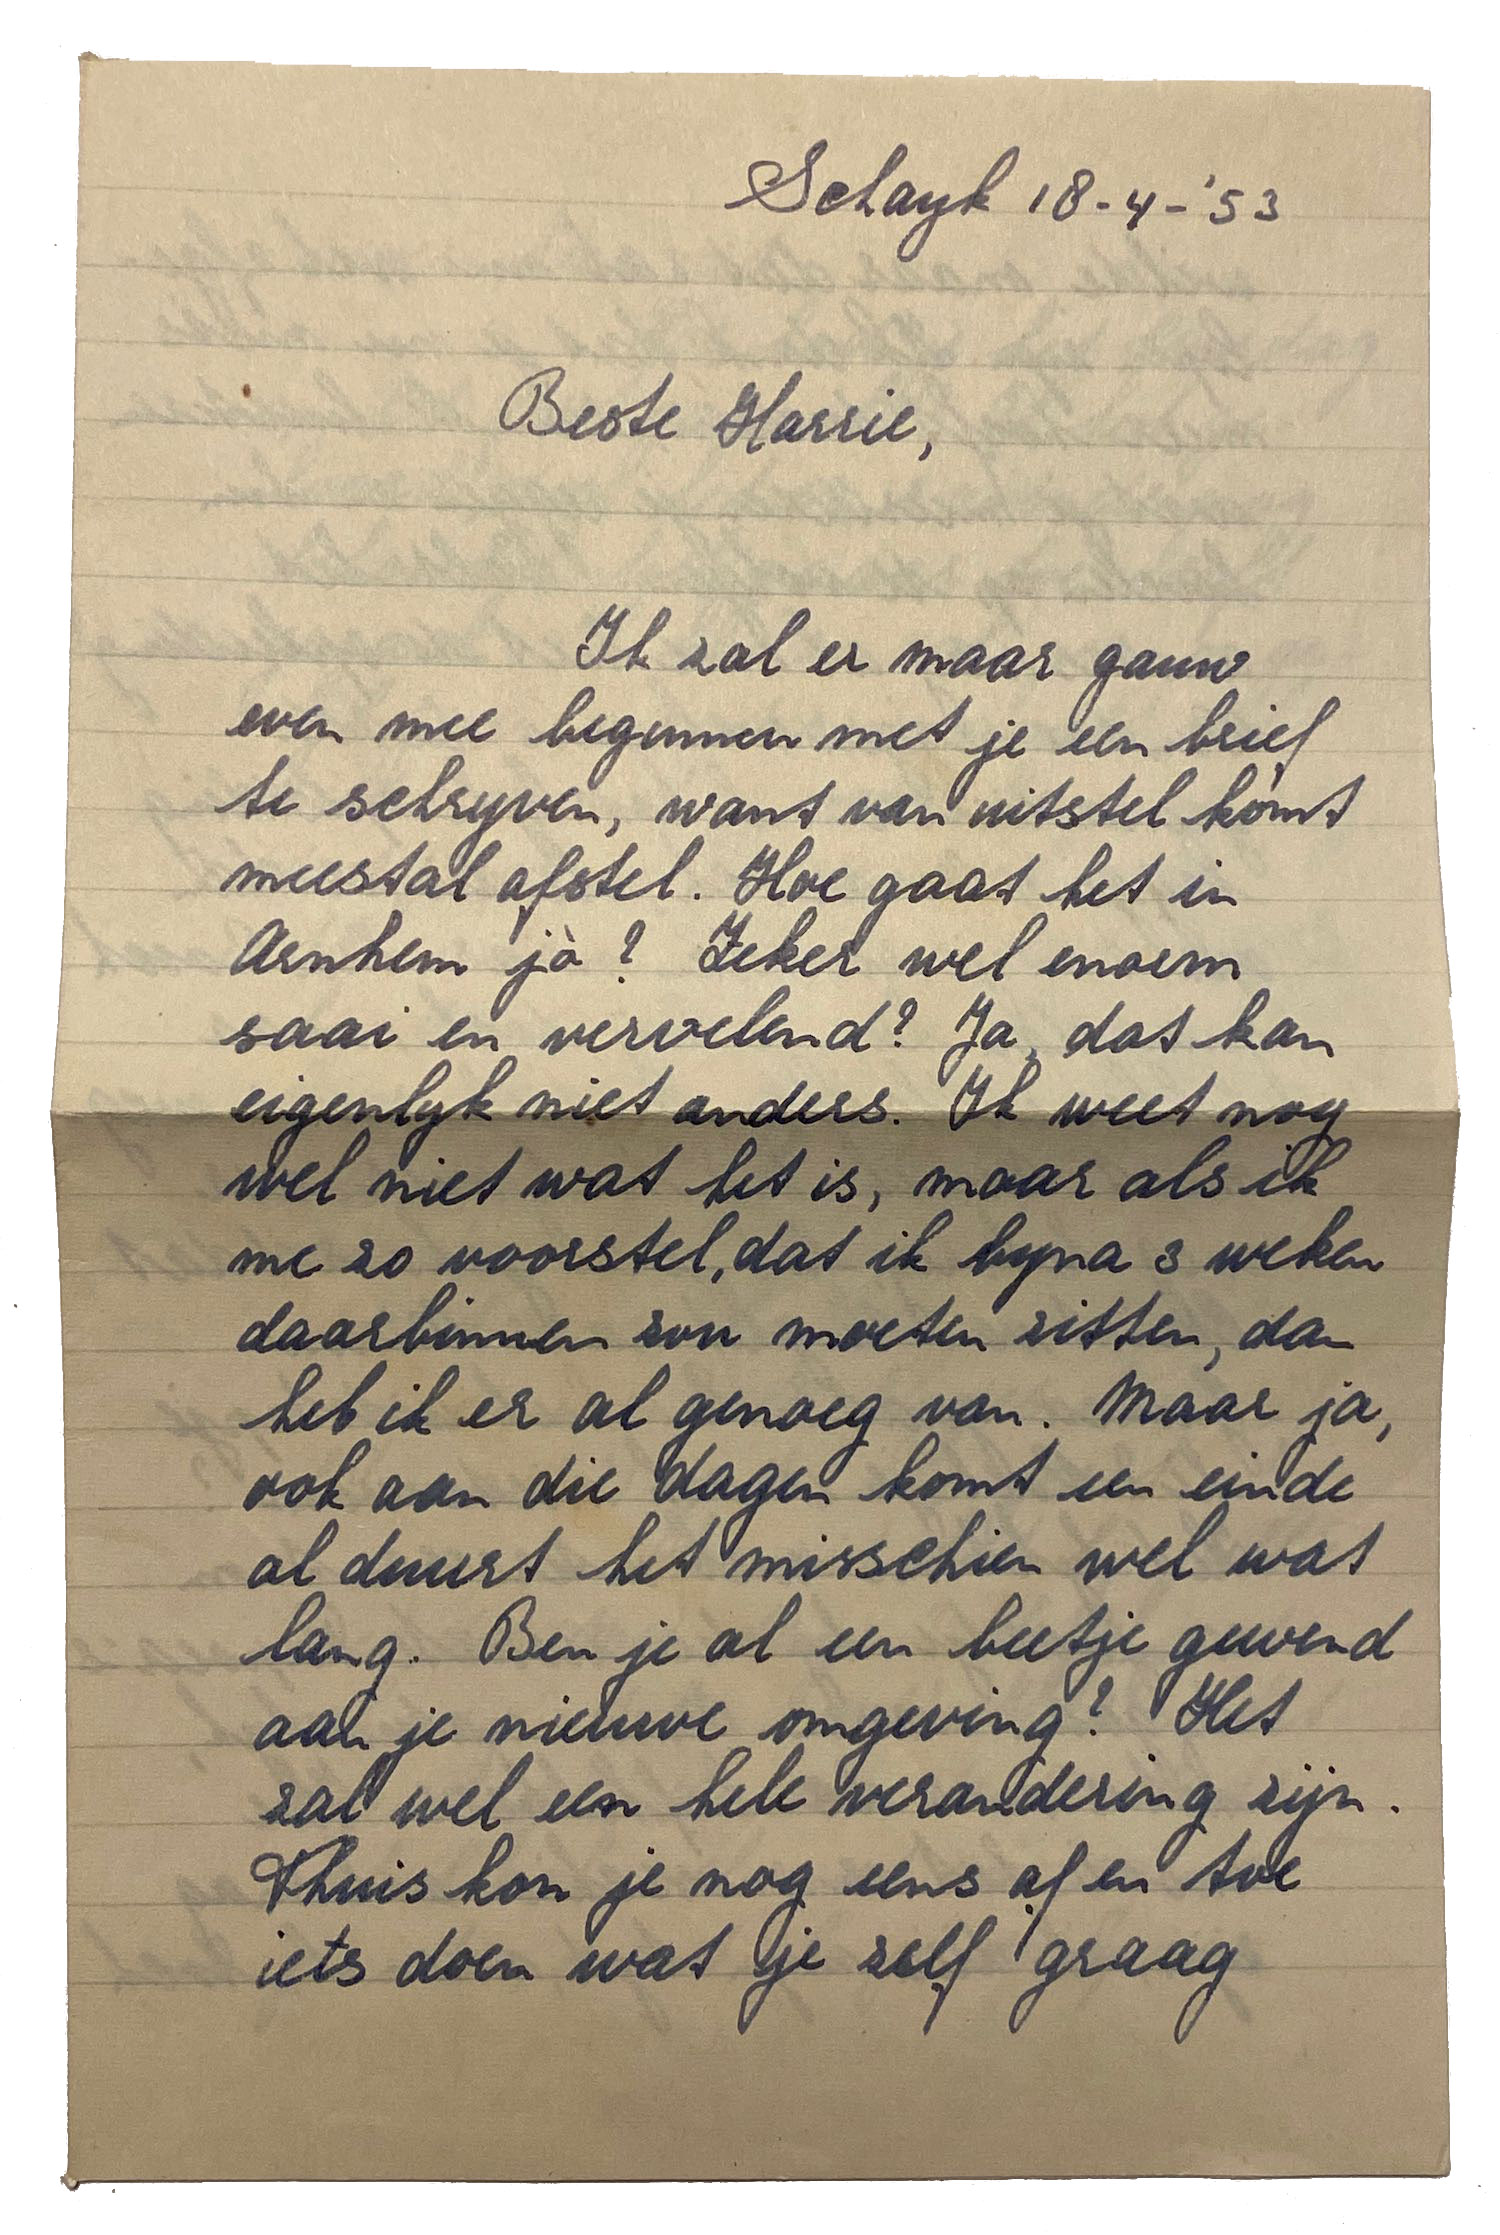 Schayk 18-4-'53
Beste Harrie,
Ik zal er maar gauw
even mee beginnen met je een brief
te schryven, want van uitstel komt
meestal afstel. Hoe gaat het in
Arnhem jò? Zeker wel enorm
saai en vervelend? Ja, dat kan
eigenlyk niet anders. Ik weet nog
wel niet wat het is, maar als ik
me zo voorstel, dat ik byna 3 weken
daarbinnen zou moeten zitten, dan
heb ik er al genoeg van. Maar ja,
ook aan die dagen komt een einde
al duurt het misschien wel wat
lang. Ben je al een beetje gewend
aan je nieuwe omgeving? Het
zal wel een hele verandering zijn.
Thuis kon je nog eens af en toe
iets doen wat je zelf graag